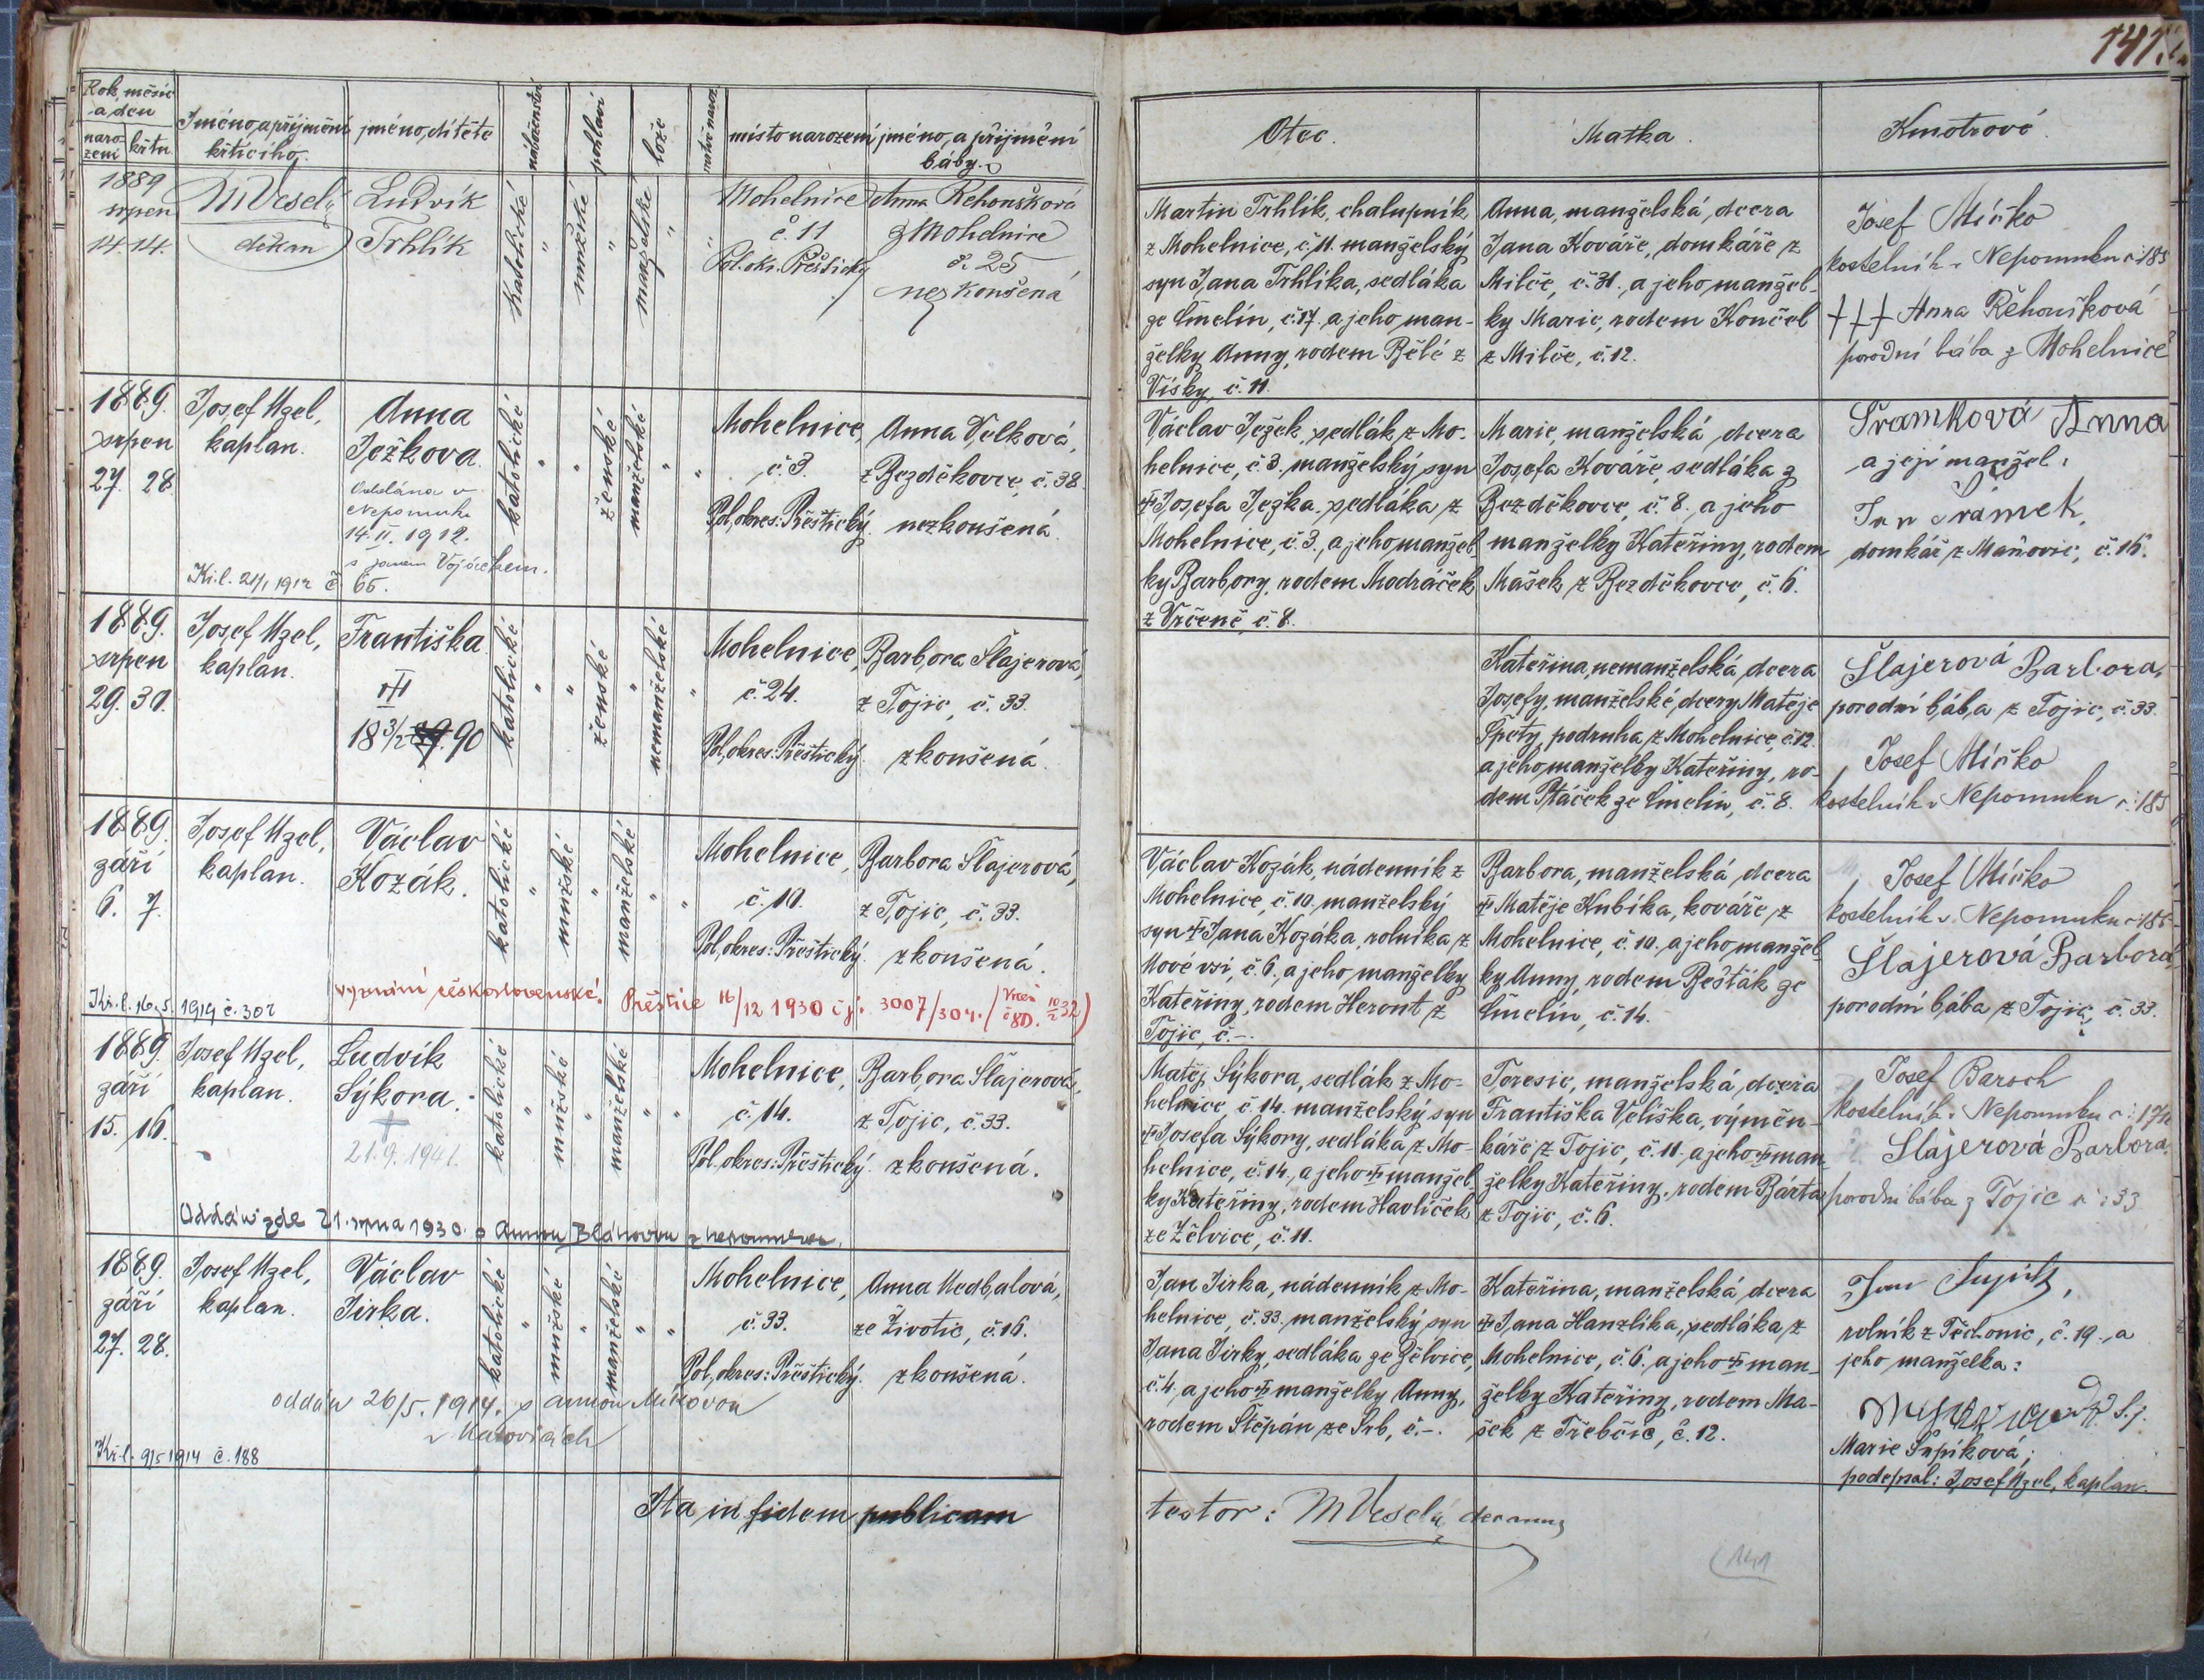 141.
Rok, měsíc a den
narození
křtu
Jméno a příjmení křtícího.
jméno dítěte
náboženství
pohlaví
lože
místo narození
jméno a příjmení báby.
Otec.
Matka.
Kmotrové.
1889
srpen
14. 14.
M Veselý
děkan
Ludvík
Trhlík
katolické
mužské
manželské
Mohelnice
č. 11
Pol. okr. Přeštický
Anna Řehoušková
z Mohelnice
č. 25
nezkoušená
Martin Trhlík, chalupník
z Mohelnice, č. 11. manželský
syn Jana Trhlíka, sedláka
ze Čmelín, č. 17. a jeho man-
želky Anny, rodem Bělé z
Vísky, č. 11.
Anna, manželská, dcera
Jana Kováře, domkáře z
Milče, č. 31., a jeho manžel-
ky Marie, rodem Končel
z Milče, č. 12.
Josef Míčko
kostelník v Nepomuku č: 185
+++ Anna Řehoušková
porodní bába z Mohelnice
1889.
srpen
27. 28.
Josef Uzel,
kaplan.
Anna
Ježkova.
Oddána v
Nepomuku
14. II. 1912.
s Janem Vojáčkem.
Kř. l. 24/1 1912 č. 65.
katolické
ženské
manželské
Mohelnice,
č. 3.
Pol. okres: Přeštický.
Anna Velková,
z Bezděkovce, č. 38.
nezkoušená.
Václav Ježek, sedlák z Mo-
helnice, č. 3. manželský syn
† Josefa Ježka, sedláka z
Mohelnice, č. 3., a jeho manžel-
ky Barbory, rodem Modráček
z Vrčeně, č. 8.
Marie, manželská dcera
Josefa Kováře, sedláka z
Bezděkovce, č. 8. a jeho
manželky Kateřiny, rodem
Mašek z Bezděkovce, č. 6.
Šramková Anna
a její manžel:
Jan Šrámek,
domkář z Maňovic, č. 16.
1889.
srpen
29. 30.
Josef Uzel,
kaplan.
Františka
18 3/2 90
katolické
ženské
nemanželské
Mohelnice,
č. 24.
Pol. okres: Přeštický.
Barbora Šlajerová,
z Tojic, č. 33.
zkoušená.
Kateřina, nemanželská dcera
Josefy, manželské dcery Matěje
Spěty, podruha z Mohelnice, č. 12.
a jeho manželky Kateřiny, ro-
dem Ptáček ze Čmelín, č. 8.
Šlajerová Barbora,
porodní bába z Tojic, č. 33.
Josef Míčko
kostelník v Nepomuku č: 185
1889.
září
6. 7.
Josef Uzel,
kaplan.
Václav
Kozák.
katolické
mužské
manželské
Mohelnice,
č. 10.
Pol. okres: Přeštický.
Barbora Šlajerová,
z Tojic, č. 33.
zkoušená.
Kř. l. 16. 5. 1914 č. 302
vyznání československé. Přeštice 16/12 1930 čj. 3007/30
Václav Kozák, nádenník z
Mohelnice, č. 10. manželský
syn † Jana Kozáka, rolníka z
Nové vsi, č. 6., a jeho manželky
Kateřiny, rodem Heront z
Tojic, č. –.
Barbora, manželská dcera
† Matěje Kubíka, kováře z
Mohelnice, č. 10. a jeho manžel-
ky Anny, rodem Bešťák ze
Čmelín, č. 14.
Josef Míčko
kostelník v Nepomuku č: 185
Šlajerová Barbora,
porodní bába z Tojic, č. 33.
1889.
září
15. 16.
Josef Uzel,
kaplan.
Ludvík
Sýkora.
+
21. 9. 1941.
katolické
mužské
manželské
Mohelnice,
č. 14.
Pol. okres: Přeštický.
Barbora Šlajerová,
z Tojic, č. 33.
zkoušená.
Oddán zde 21. srpna 1930 s Annou Bláhovou z Nepomuka.
Matěj Sýkora, sedlák z Mo-
helnice, č. 14. manželský syn
† Josefa Sýkory, sedláka z Mo-
helnice, č. 14., a jeho † manžel-
ky Kateřiny, rodem Havlíček
ze Želvice, č. 11.
Teresie, manželská dcera
Františka Velíška, výměn-
káře z Tojic, č. 11. a jeho † man-
želky Kateřiny, rodem Bárta
z Tojic, č. 6.
Josef Baroch
kostelník v Nepomuku
Šlajerová Barbora.
porodní bába z Tojic č: 33
1889.
září
27. 28.
Josef Uzel,
kaplan.
Václav
Jirka.
katolické
mužské
manželské
Mohelnice,
č. 33.
Pol. okres: Přeštický.
Anna Nedbalová,
ze Životic, č. 16.
zkoušená.
oddán 26/5. 1914. s Annou Míkovou
Kř. l. 9/5 1914 č. 188
Jan Jirka, nádenník z Mo-
helnice, č. 33. manželský syn
Jana Jirky, sedláka ze Želvice,
č. 4. a jeho † manželky Anny,
rodem Štěpán ze Srb, č. –.
Kateřina, manželská dcera
† Jana Hanzlíka, sedláka z
Mohelnice, č. 6. a jeho † man-
želky Kateřiny, rodem Ma-
šek z Třebčic, č. 12.
rolník z Tědonic, č. 19., a
jeho manželka:
Marie Šupíková;
podepsal: Josef Uzel, kaplan.
Ita in fidem publicam
testor: M Veselý decanus
141